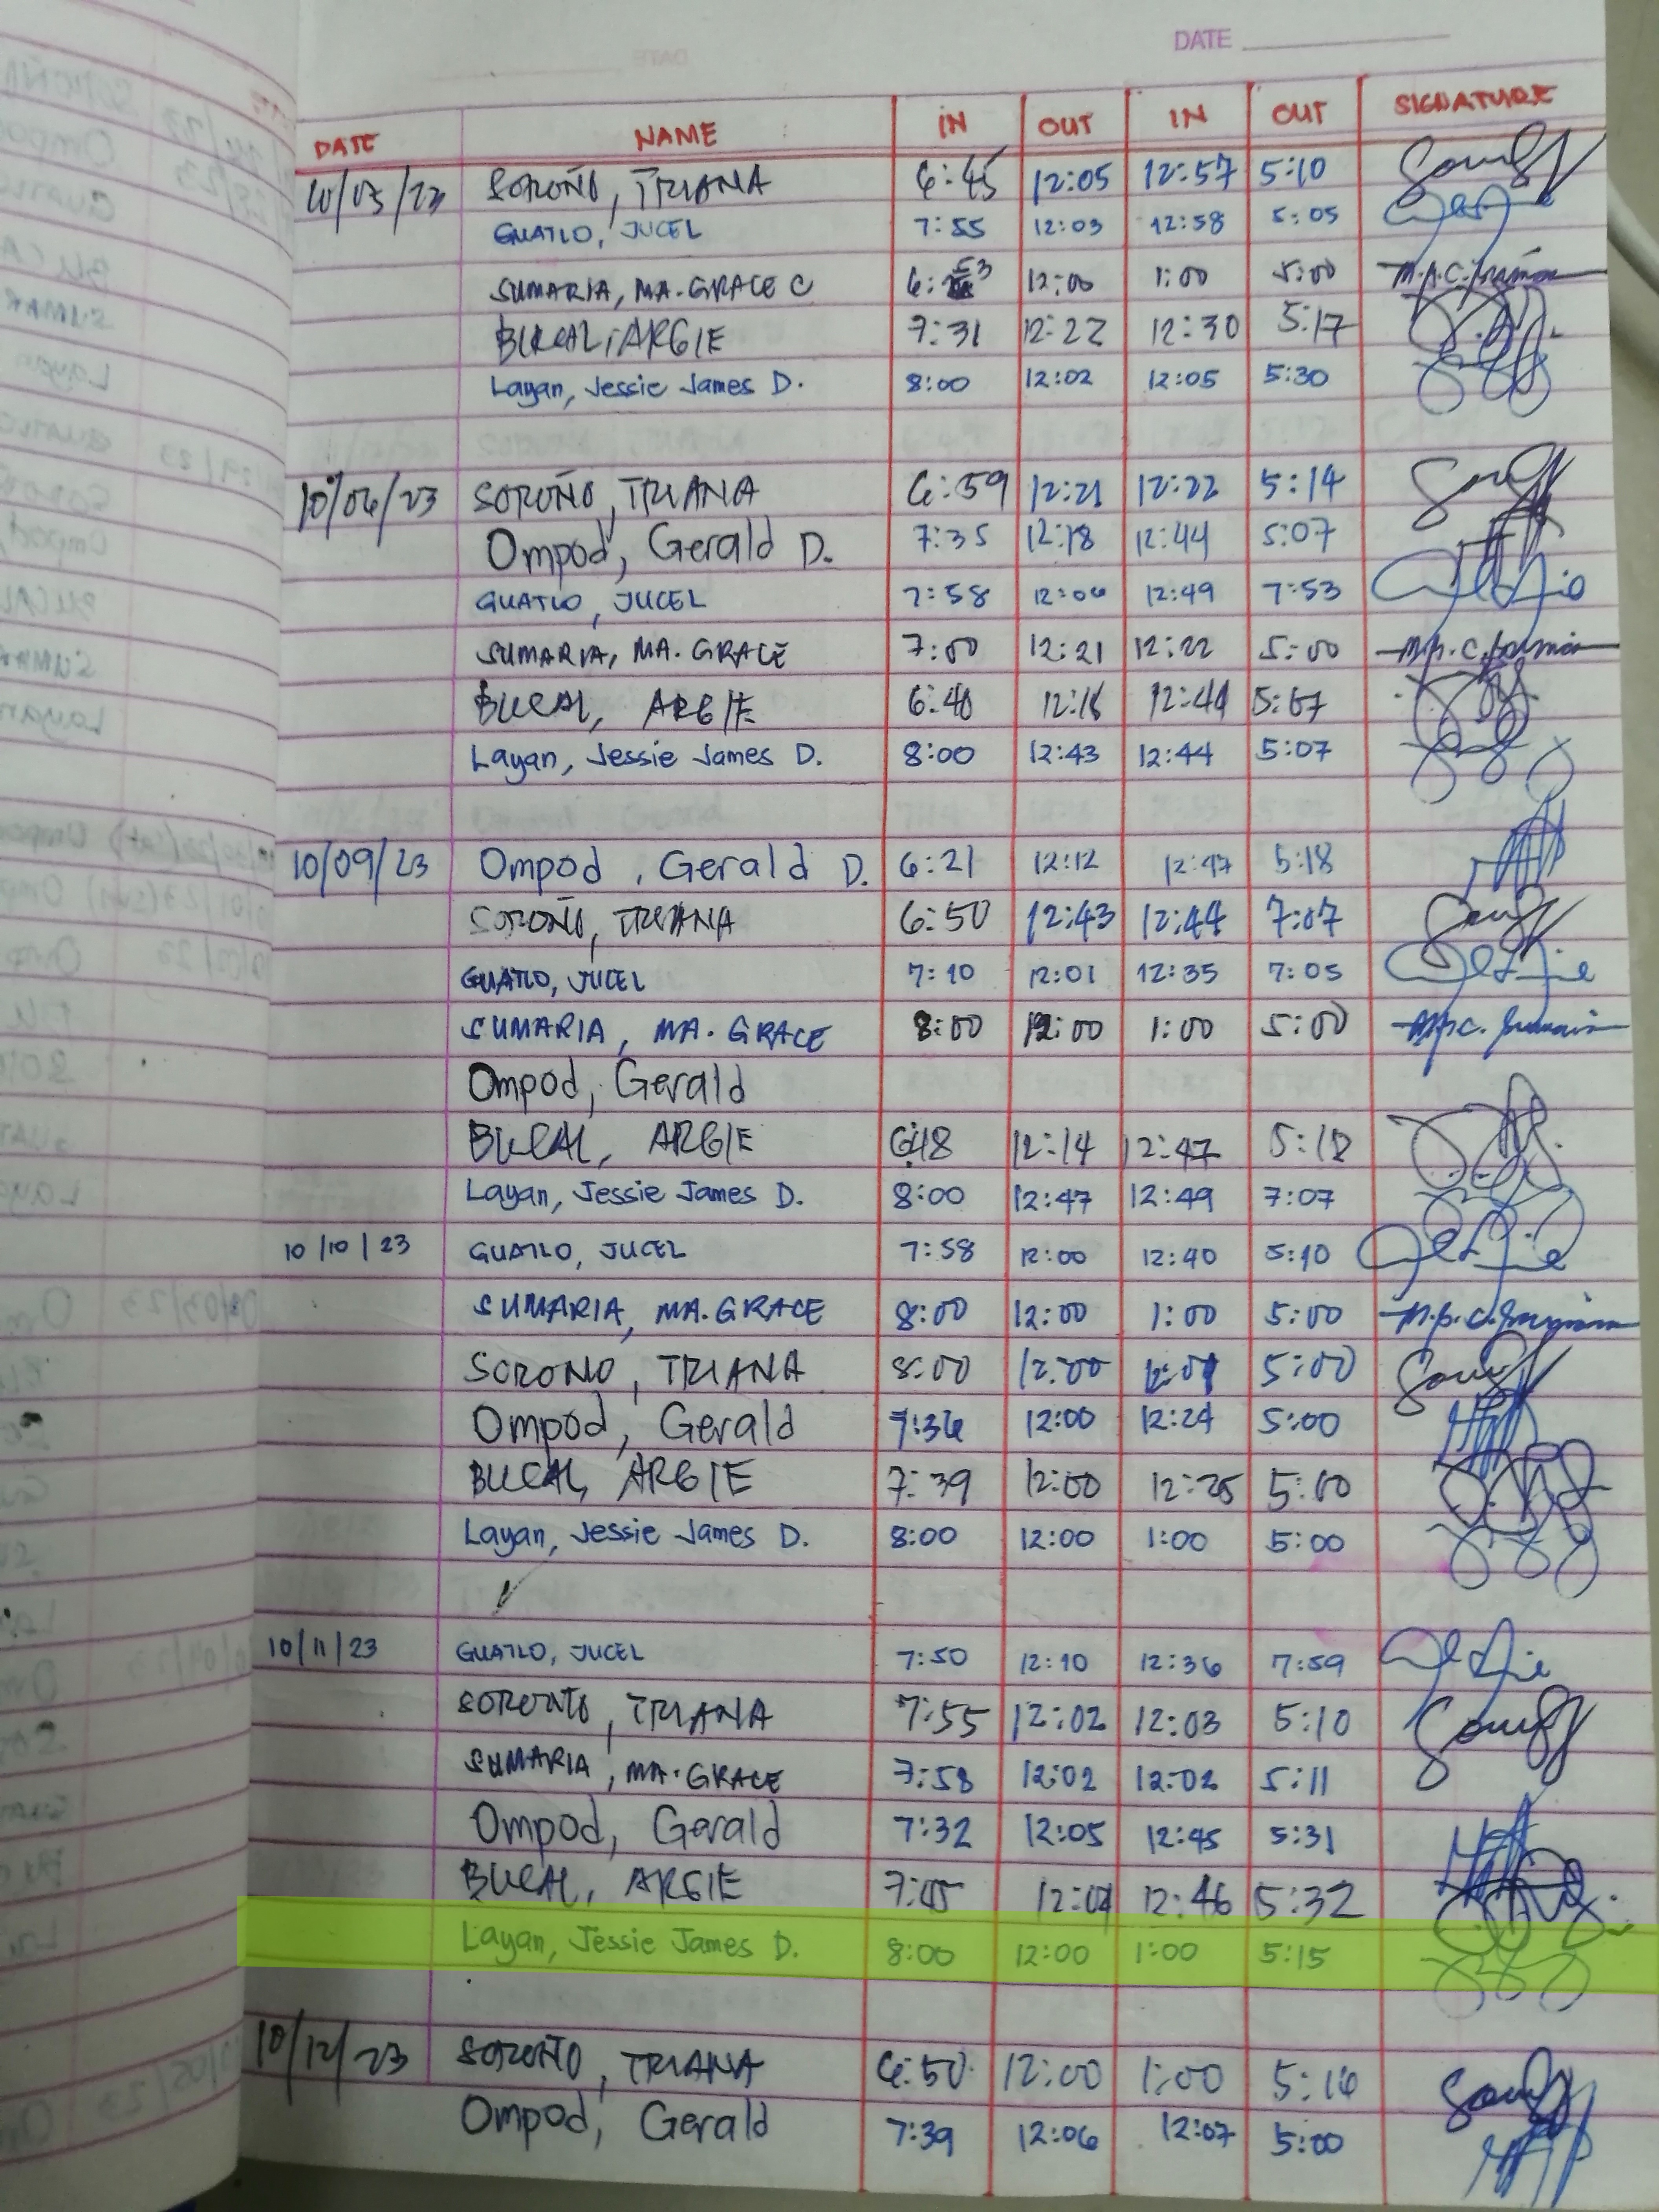 DATE
DATE NAME IN OUT IN OUT SIGNATURE
SOROÑO, TRIANA 6:45 12:05 12:57 5:10
GUATLO, JUCEL 7:55 12:03 12:58 5:05
SUMARIA, MA. GRACE C 12:00 1:00 5:00
BUCAL, ARGIE 7:31 12:22 12:30 5:17
Layan, Jessie James D. 8:00 12:02 12:05 5:30
10/06/23 SOROÑO, TRIANA 6:59 12:21 12:22 5:14
Ompod, Gerald D. 7:35 12:18 12:44 5:07
GUATLO, JUCEL 7:58 12:06 12:49 7:53
SUMARIA, MA. GRACE 7:00 12:21 12:22 5:00
BUCAL, ARGIE 6:40 12:44 5:07
Layan, Jessie James D. 8:00 12:43 12:44 5:07
10/09/23 Ompod, Gerald D. 6:21 12:12 12:47 5:18
SOROÑO, TRIANA 6:50 12:43 12:44 7:07
GUATLO, JUCEL 7:10 12:01 12:35 7:05
SUMARIA, MA. GRACE 8:00 12:00 1:00 5:00
Ompod, Gerald
BUCAL, ARGIE 6:18 12:14 12:47 5:18
Layan, Jessie James D. 8:00 12:47 12:49 7:07
10/10/23 GUATLO, JUCEL 7:58 12:00 12:40 5:10
SUMARIA, MA. GRACE 8:00 12:00 1:00 5:00
SOROÑO, TRIANA 8:00 12:00 5:00
Ompod, Gerald 7:36 12:00 12:24 5:00
BUCAL, ARGIE 7:39 12:00 12:25 5:00
Layan, Jessie James D. 8:00 12:00 1:00 5:00
10/11/23 GUATLO, JUCEL 7:50 12:10 12:36 7:59
SOROÑO, TRIANA 7:55 12:02 12:03 5:10
SUMARIA, MA. GRACE 7:58 12:02 12:02 5:11
Ompod, Gerald 7:32 12:05 12:45 5:31
BUCAL, ARGIE 7:45 12:04 12:46 5:32
Layan, Jessie James D. 8:00 12:00 1:00 5:15
10/12/23 SOROÑO, TRIANA 6:50 12:00 1:00 5:16
Ompod, Gerald 7:39 12:06 12:07 5:00